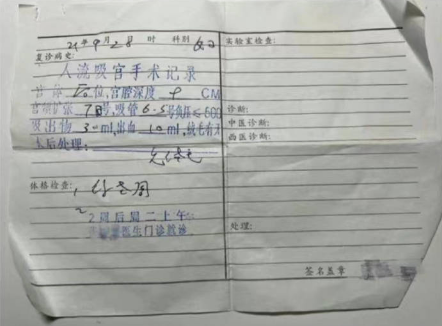 21年9月28 时 科别 妇
复诊病史:
人流吸宫手术记录
位,宫腔深度 9 CM
宫颈扩张 7 号,吸管 6.5 号负压≤500
吸出物 30 ml,出血 10 ml,绒毛有
术后处理:
体格检查: 1,休息周
2 2周后周二上午
医生门诊就诊
实验室检查:
诊断:
中医诊断:
西医诊断:
处理:
签名盖章